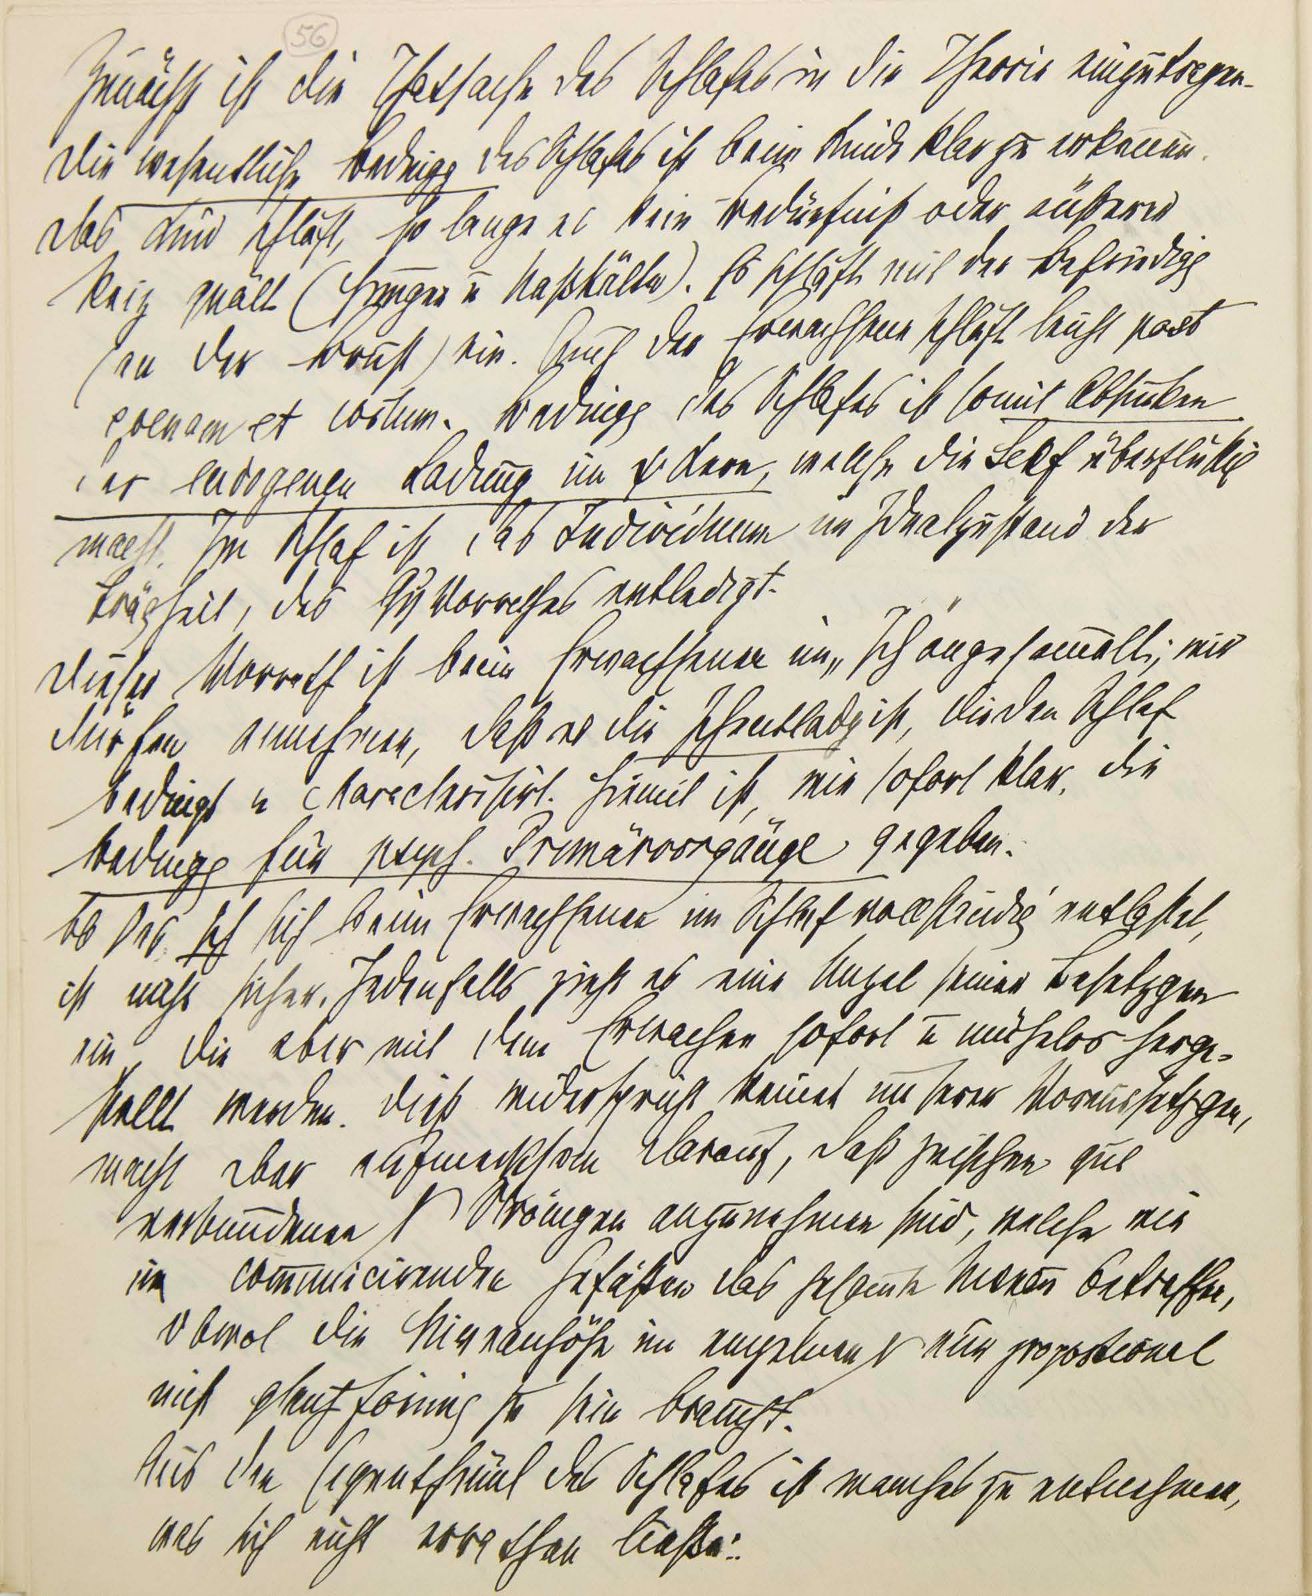 56
Zunächst ist die Thatsache des Schlafes in die Theorie einzutragen.
Die wesentliche Bedingg des Schlafes ist beim Kinde klar zu erkennen.
Das Kind schläft, so lange es kein Bedürfniß oder äußerer
Reiz quält (Hunger u Naßkälte). Es schläft mit der Befriedigg
(an der Brust) ein. Auch der Erwachsene schläft leicht post
coenam et coitum. Bedingg des Schlafes ist somit Absinken
der endogenen Ladung im ψ Kern, welche die Sekf überflüßig
macht. Im Schlaf ist das Individuum im Idealzustand der
Trägheit, des Qη Vorrathes entledigt.
Dieser Vorrath ist beim Erwachsenen im „Ich" angesammelt; wir
dürfen annehmen, daß es die Ichentladg ist, die den Schlaf
bedingt u charakterisirt. Hiemit ist, wie sofort klar, die
Bedingg für psych. Primärvorgänge gegeben.
Ob das Ich sich beim Erwachsenen im Schlaf vollständig entlastet,
ist nicht sicher. Jedenfalls zieht es eine Unzal seiner Besetzgen
ein, die aber mit dem Erwachen sofort u mühelos herge-
stellt werden. Dieß widerspricht keiner unserer Voraussetzgen,
macht aber aufmerksam darauf, daß zwischen gut
verbundenen N Strömgen anzunehmen sind, welche wie
in communicirenden Gefäßen das gesammte Niveau betreffen,
obwol die Niveauhöhe im einzelnen N nur proportional
nicht gleichförmig zu sein braucht.
Aus den Eigenthüml des Schlafes ist manches zu entnehmen,
was sich nicht errathen ließe: